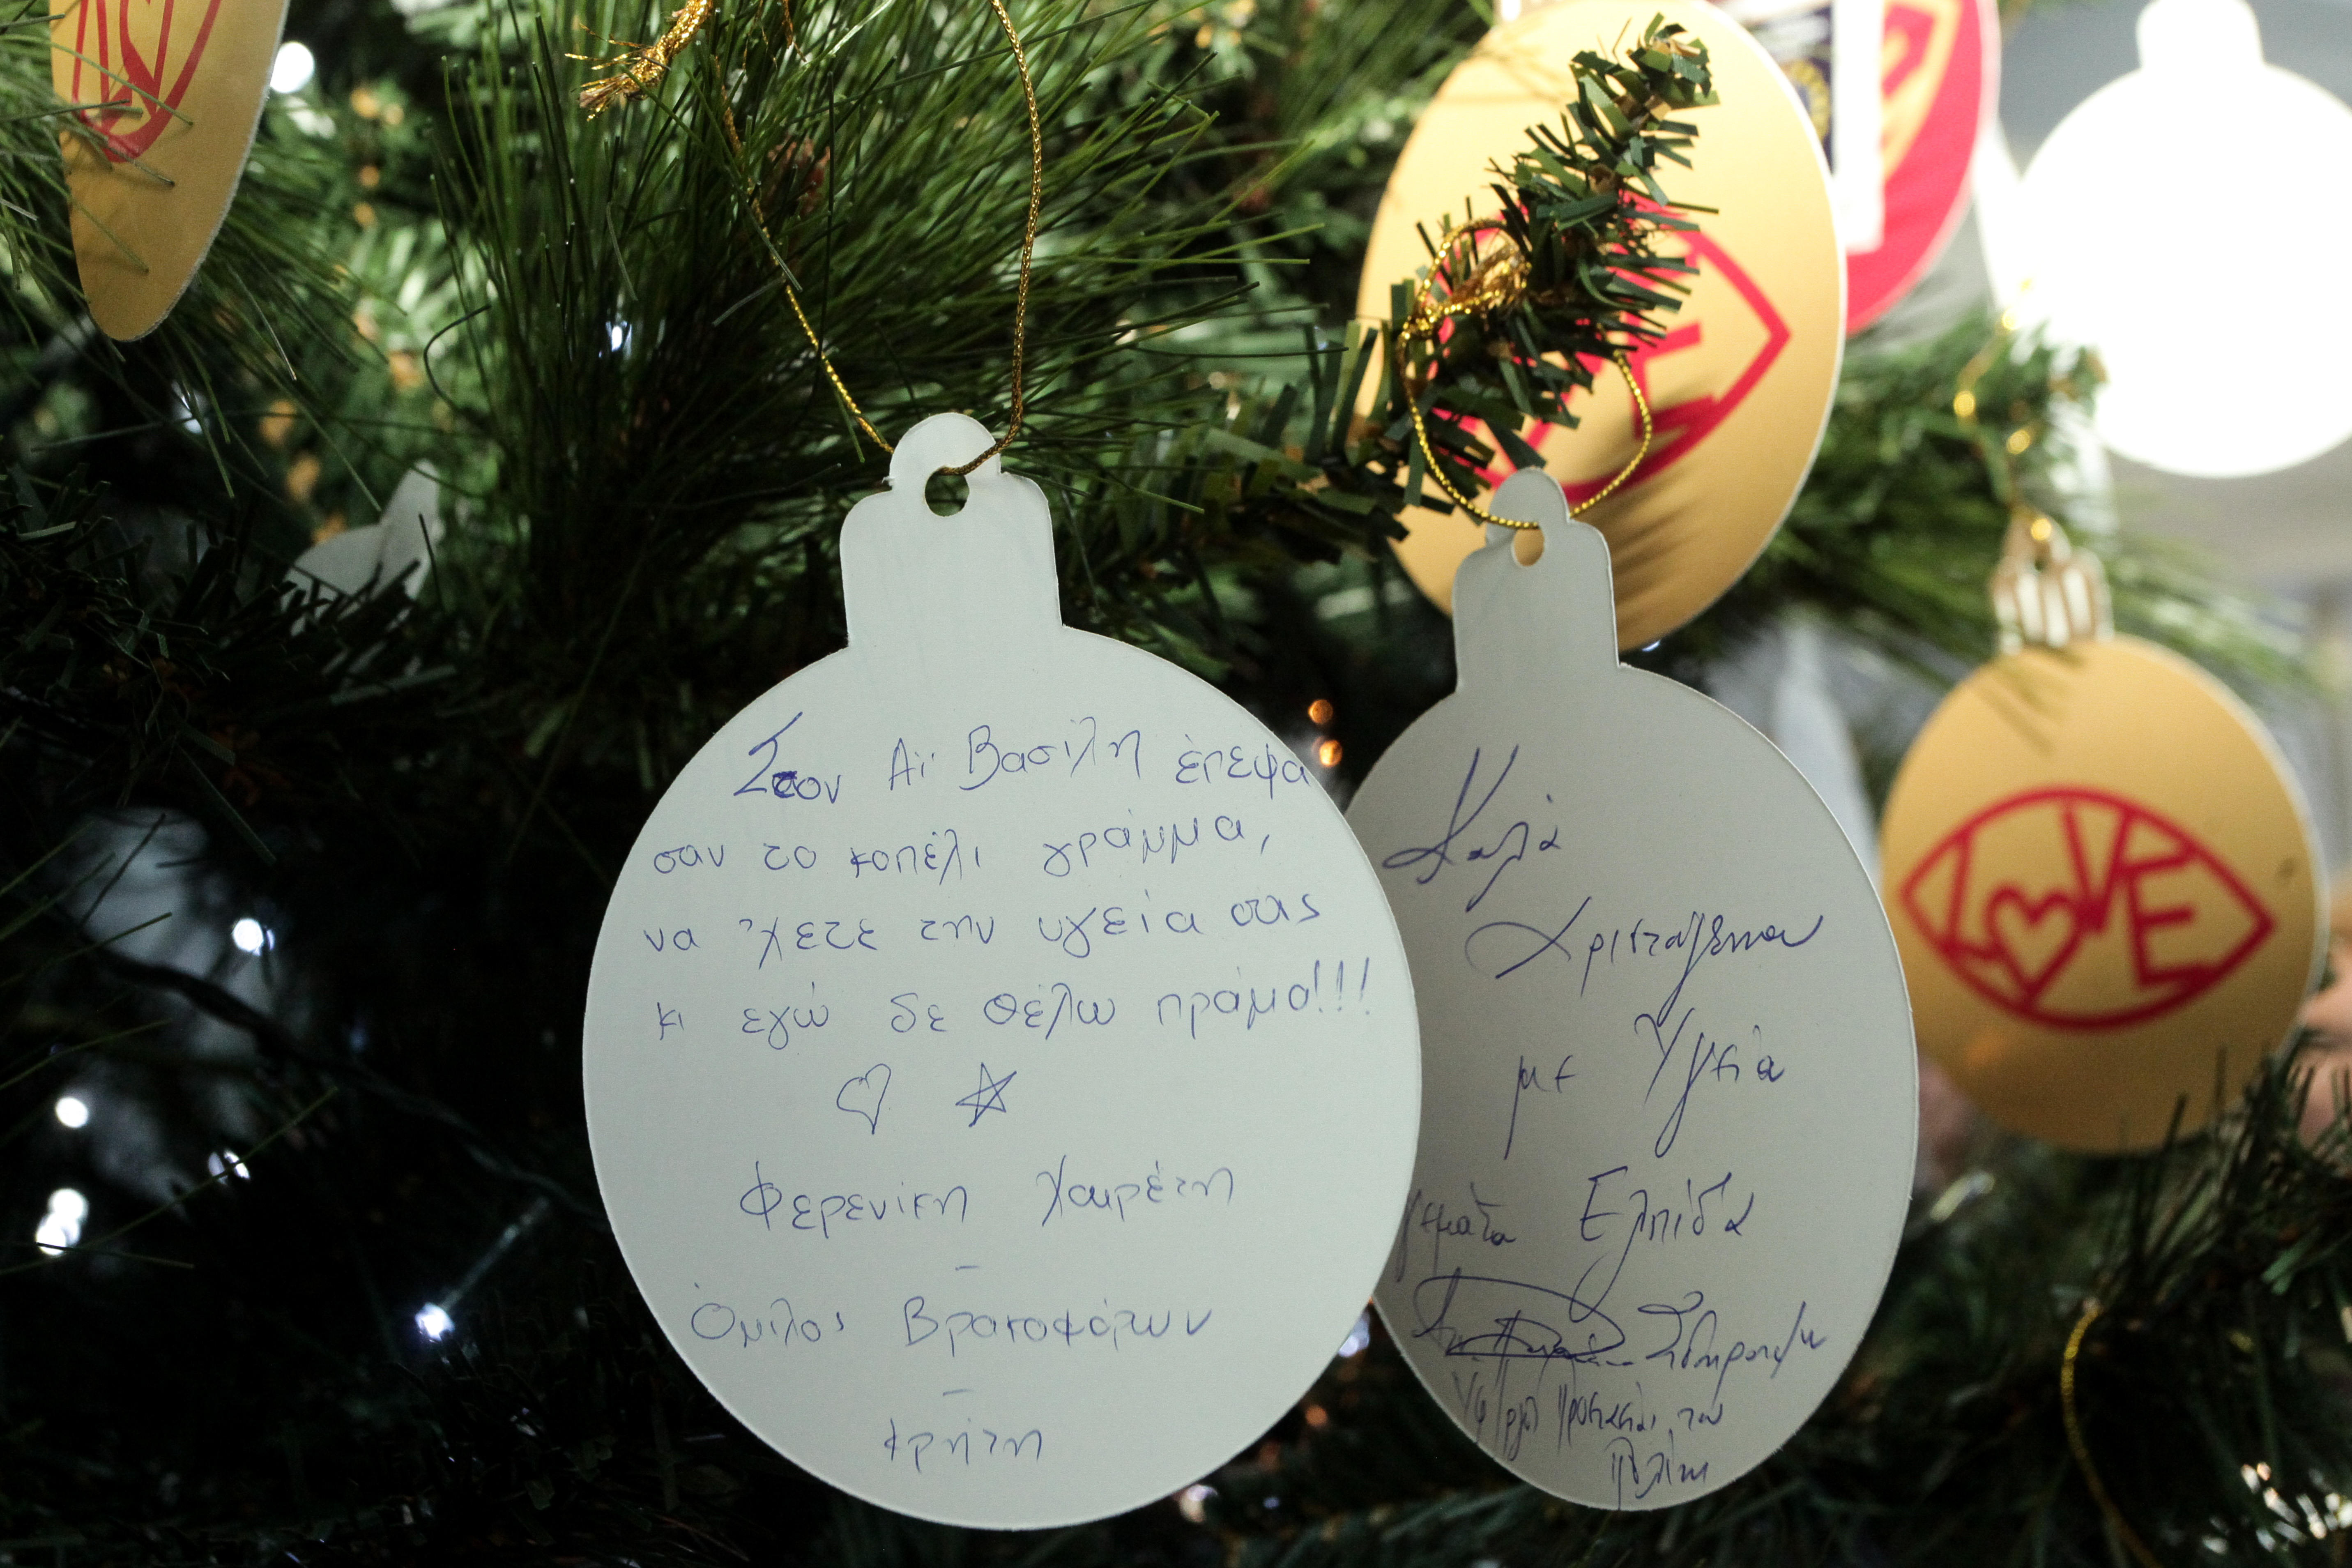 Στον Αϊ Βασίλη έπεψα
σαν το κοπέλι γράμμα,
να 'χετε την υγεία σας
κι εγώ δε θέλω πράμα!!!
Φερενίκη Χαιρέτη
-
Όμιλος Βρακοφόρων
-
Κρήτη
Καλά
Χριστούγεννα
με Υγεία
γεμάτα Ελπίδα
του
Πολίτη
LOVE